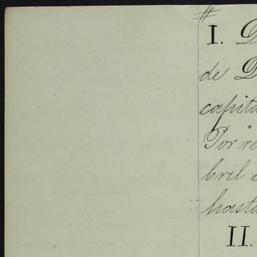 #
I. D
de D
capita
Por re
bril
hasta
II.